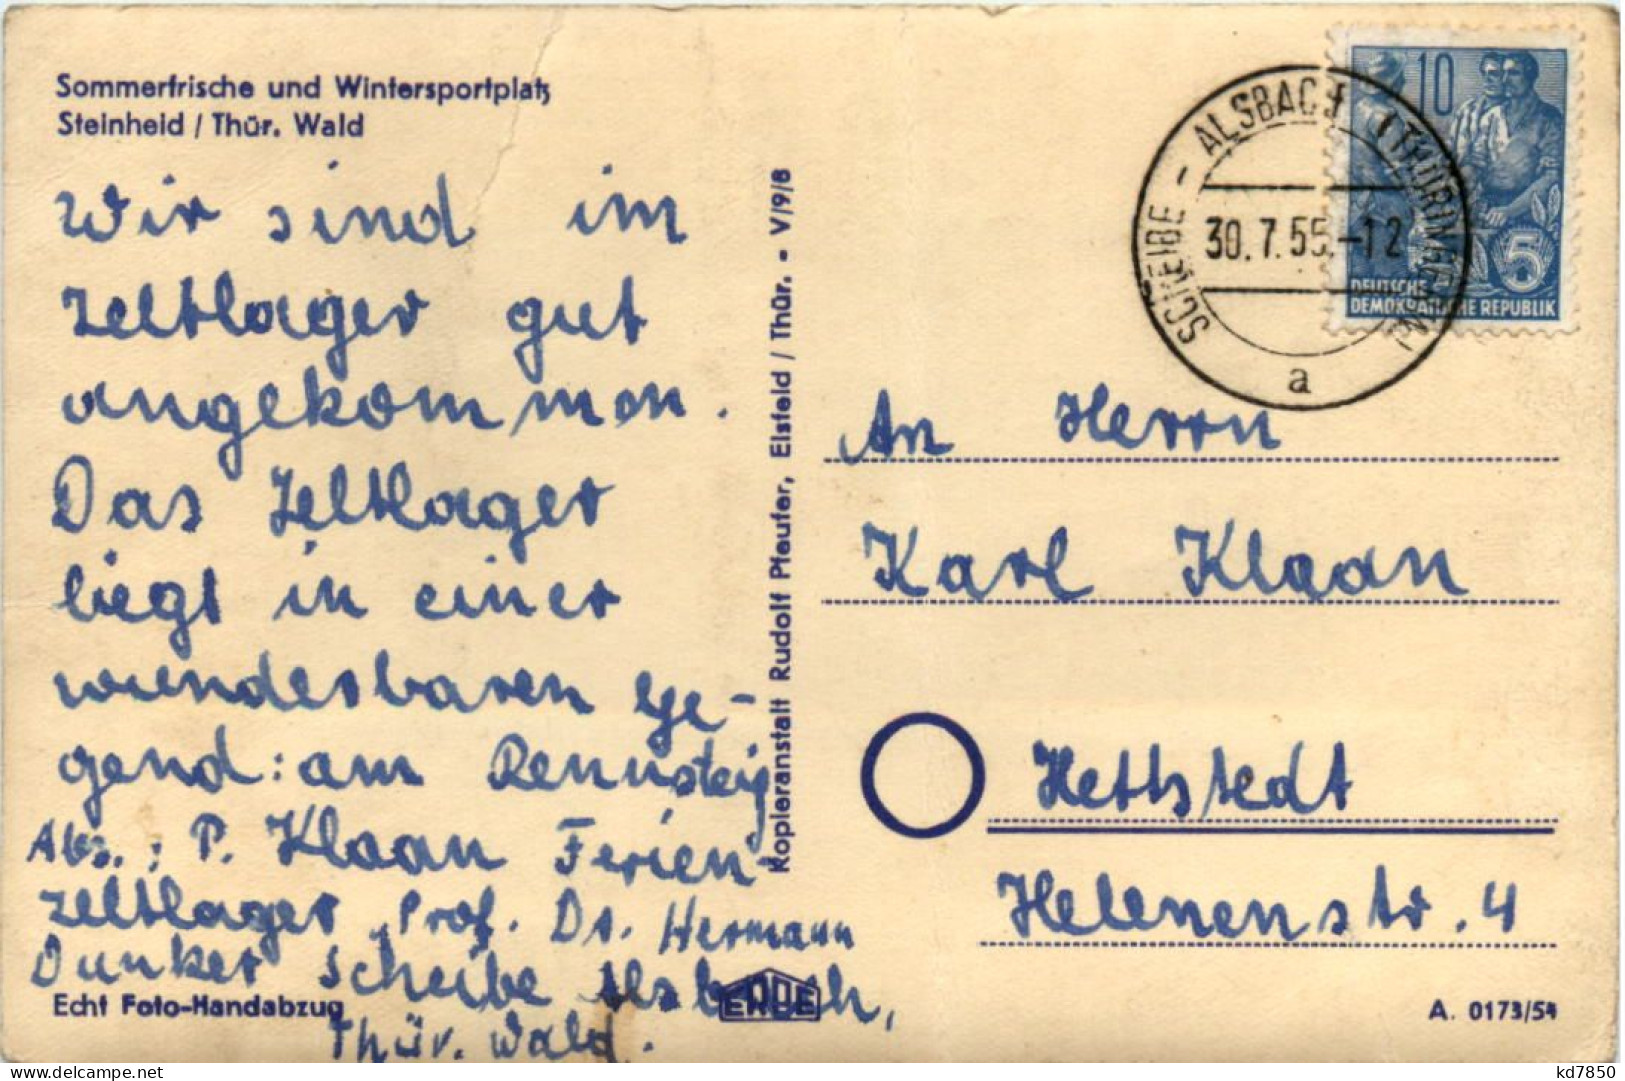 Sommerfrische und Wintersportplatz
Steinheid / Thür. Wald
Wir sind im
Zeltlager gut
angekommen.
Das Zeltlager
liegt in einer
wunderbaren Ge-
gend: am Rennsteig
Abs.: P. Klaan Ferien-
zeltlager „Prof. Dr. Hermann
Dunker Scheibe Alsbach,
Thür. Wald.
Echt Foto-Handabzug
Kopieranstalt Rudolf Pfeufer, Eisfeld / Thür. - V/9/8
ERDE
SCHEIBE - ALSBACH (THÜRINGER WALD)
30.7.55.-12
a
10
5
DEUTSCHE
DEMOKRATISCHE REPUBLIK
An Herrn
Karl Klaan
Hettstedt
Helenenstr. 4
A. 0173/54
kd7850